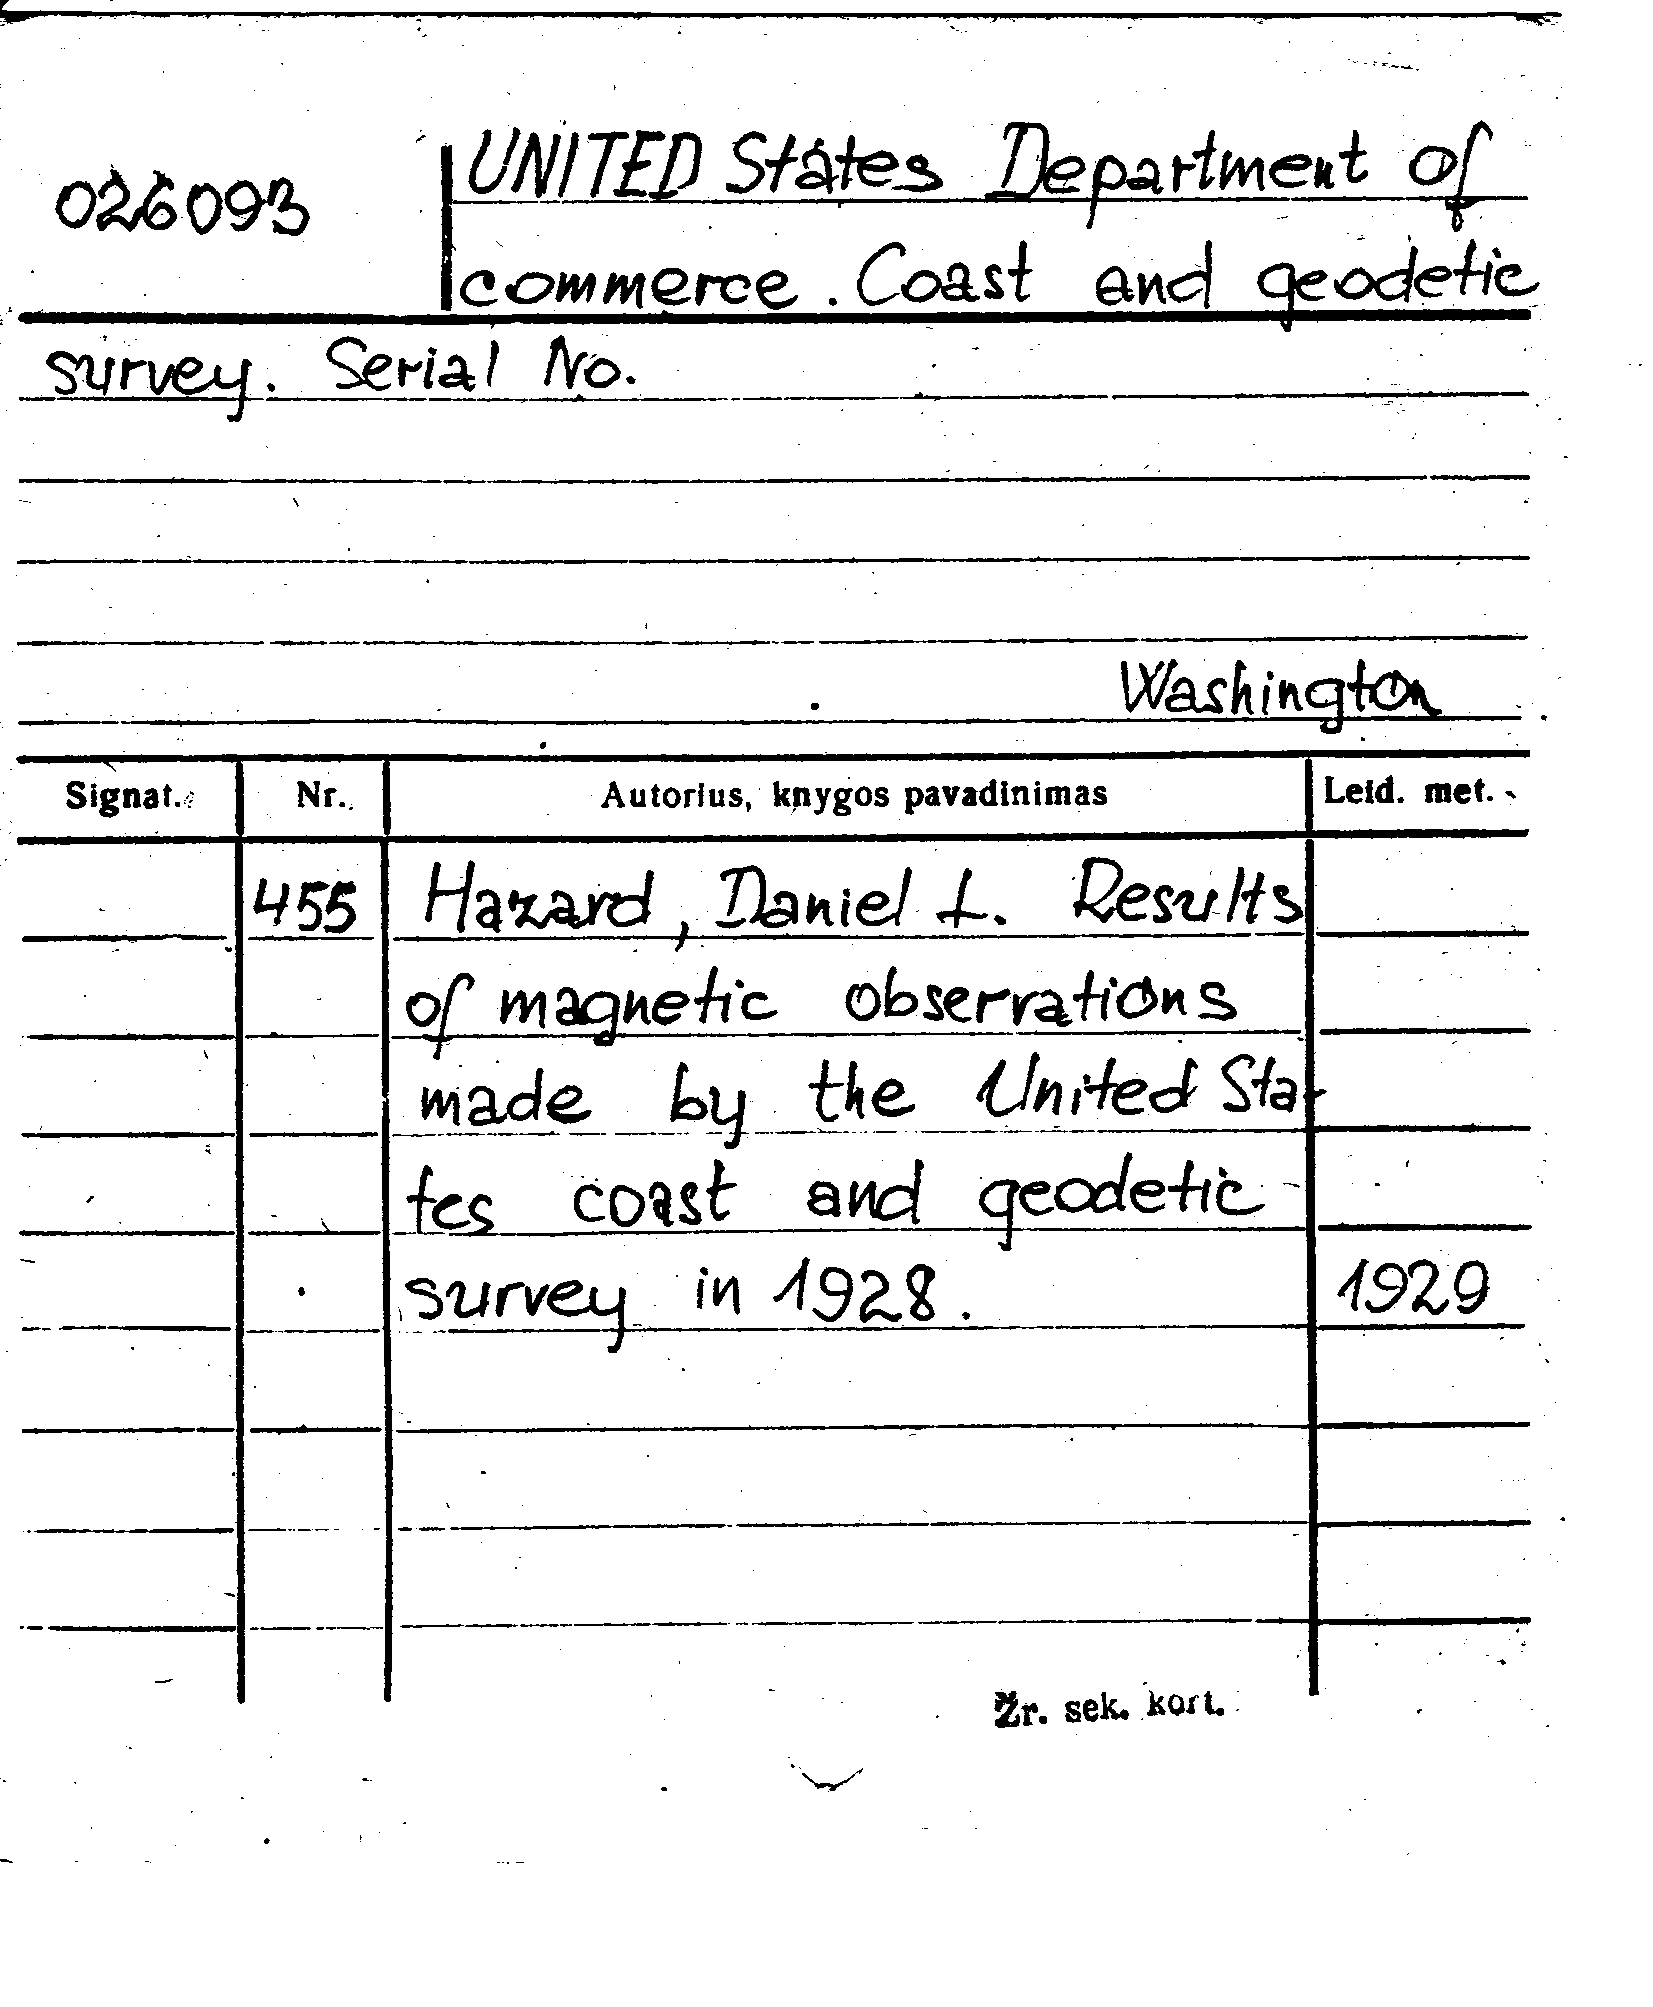 026093
UNITED States Department of
commerce. Coast and geodetic
survey. Serial No.
Washington
Signat. Nr. Autorius, knygos pavadinimas Leid. met.
455 Hazard, Daniel L. Results
of magnetic observations
made by the United Sta-
tes coast and geodetic
survey in 1928. 1929
Žr. sek. kort.